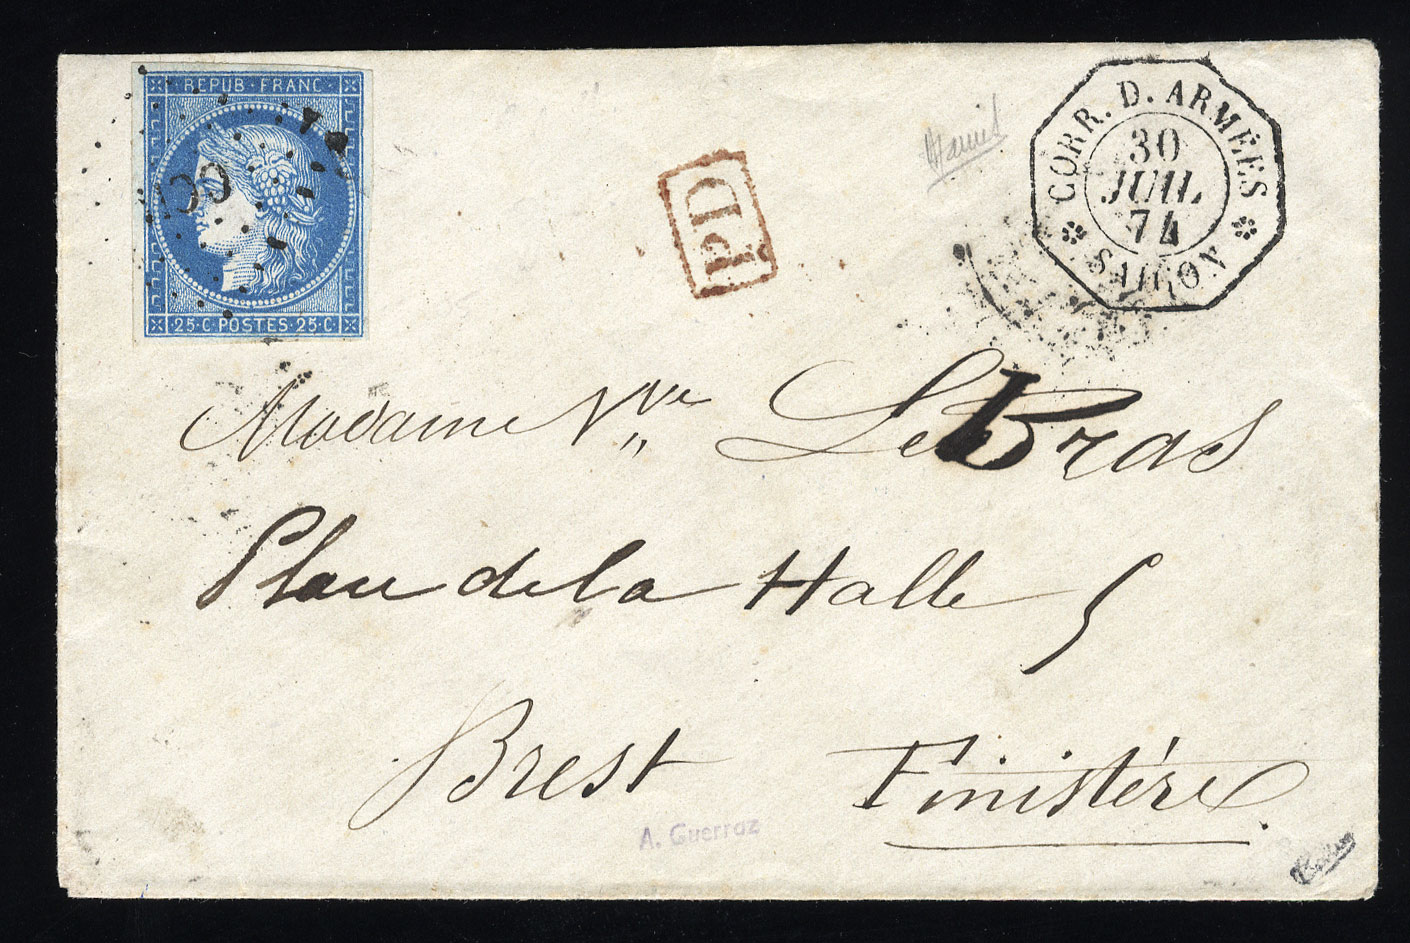 REPUB·FRANC
25·C·POSTES·25·C
PD
CORR. D. ARMÉES
30
JUIL
74
SAIGON
Madame Vve Le Bras
Plan de la Halle 5
Brest Finistère
A. Guerraz